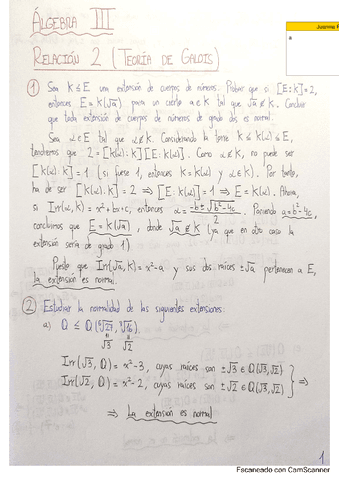 ÁLGEBRA III
RELACIÓN 2 (TEORÍA DE GALOIS)
① Sea K ≤ E una extensión de cuerpos de números. Probar que si [E:K]=2,
entonces E=K(√a) para un cierto a∈K tal que √a∉K. Concluir
que toda extensión de cuerpos de números de grado dos es normal.
Sea α∈E tal que α∉K. Considerando la torre K ≤ K(α) ≤ E,
tendremos que 2=[K(α):K][E:K(α)]. Como α∉K, no puede ser
[K(α):K]=1 (si fuese 1, entonces K=K(α) y α∈K). Por tanto,
ha de ser [K(α):K]=2 ⟹ [E:K(α)]=1 ⟹ E=K(α). Ahora,
si Irr(α,K)=x²+bx+c, entonces α=(-b±√(b²-4c))/2. Poniendo a=b²-4c,
concluimos que E=K(√a), donde √a∉K (ya que en otro caso la
extensión sería de grado 1)
Puesto que Irr(√a,K)=x²-a y sus dos raíces ±√a pertenecen a E,
la extensión es normal.
② Estudiar la normalidad de las siguientes extensiones:
a) ℚ ≤ ℚ(⁶√27, ⁸√16).
‖ ‖
√3 √2
Irr(√3,ℚ)=x²-3, cuyas raíces son ±√3∈ℚ(√3,√2)
Irr(√2,ℚ)=x²-2, cuyas raíces son ±√2∈ℚ(√3,√2) } ⟹
⟹ La extensión es normal
1
Escaneado con CamScanner